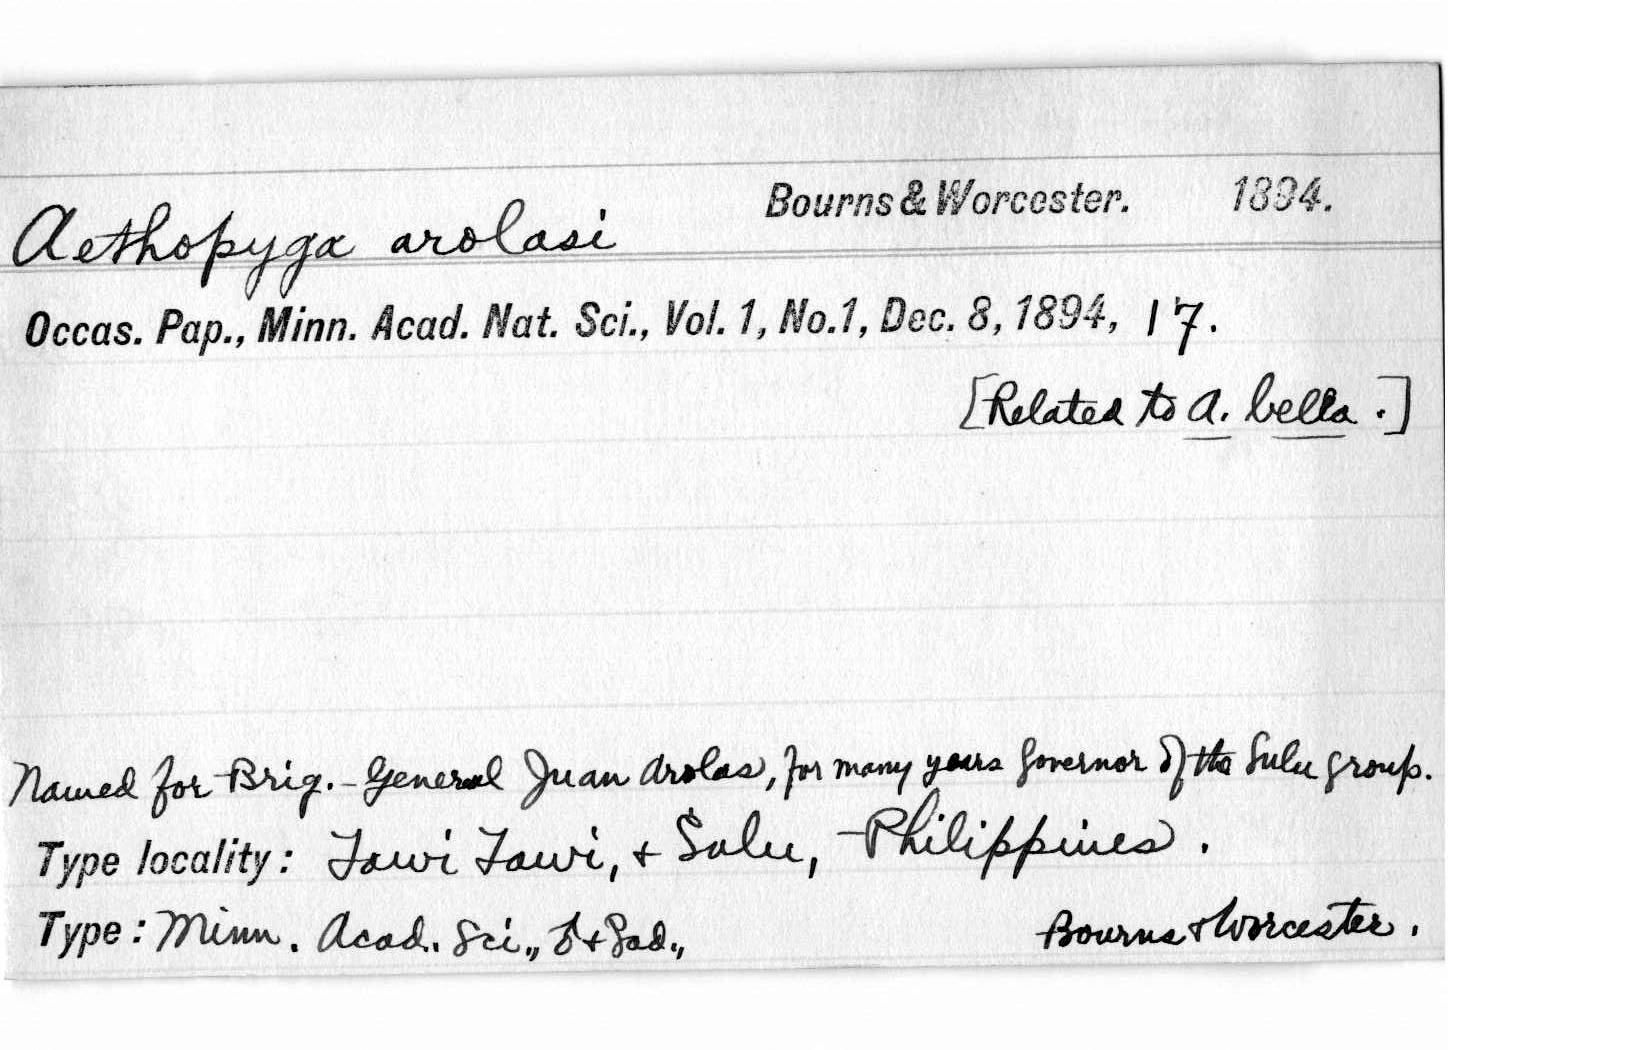 Aethopyga arolasi Bourns & Worcester. 1894.
Occas. Pap., Minn. Acad. Nat. Sci., Vol. 1, No. 1, Dec. 8, 1894, 17.
[Related to A. bella.]
Named for Brig.-General Juan Arolas, for many years Governor of the Sulu group.
Type locality: Tawi Tawi, + Sulu, Philippines.
Type: Minn. Acad. Sci., ♂ + ad., Bourns & Worcester.